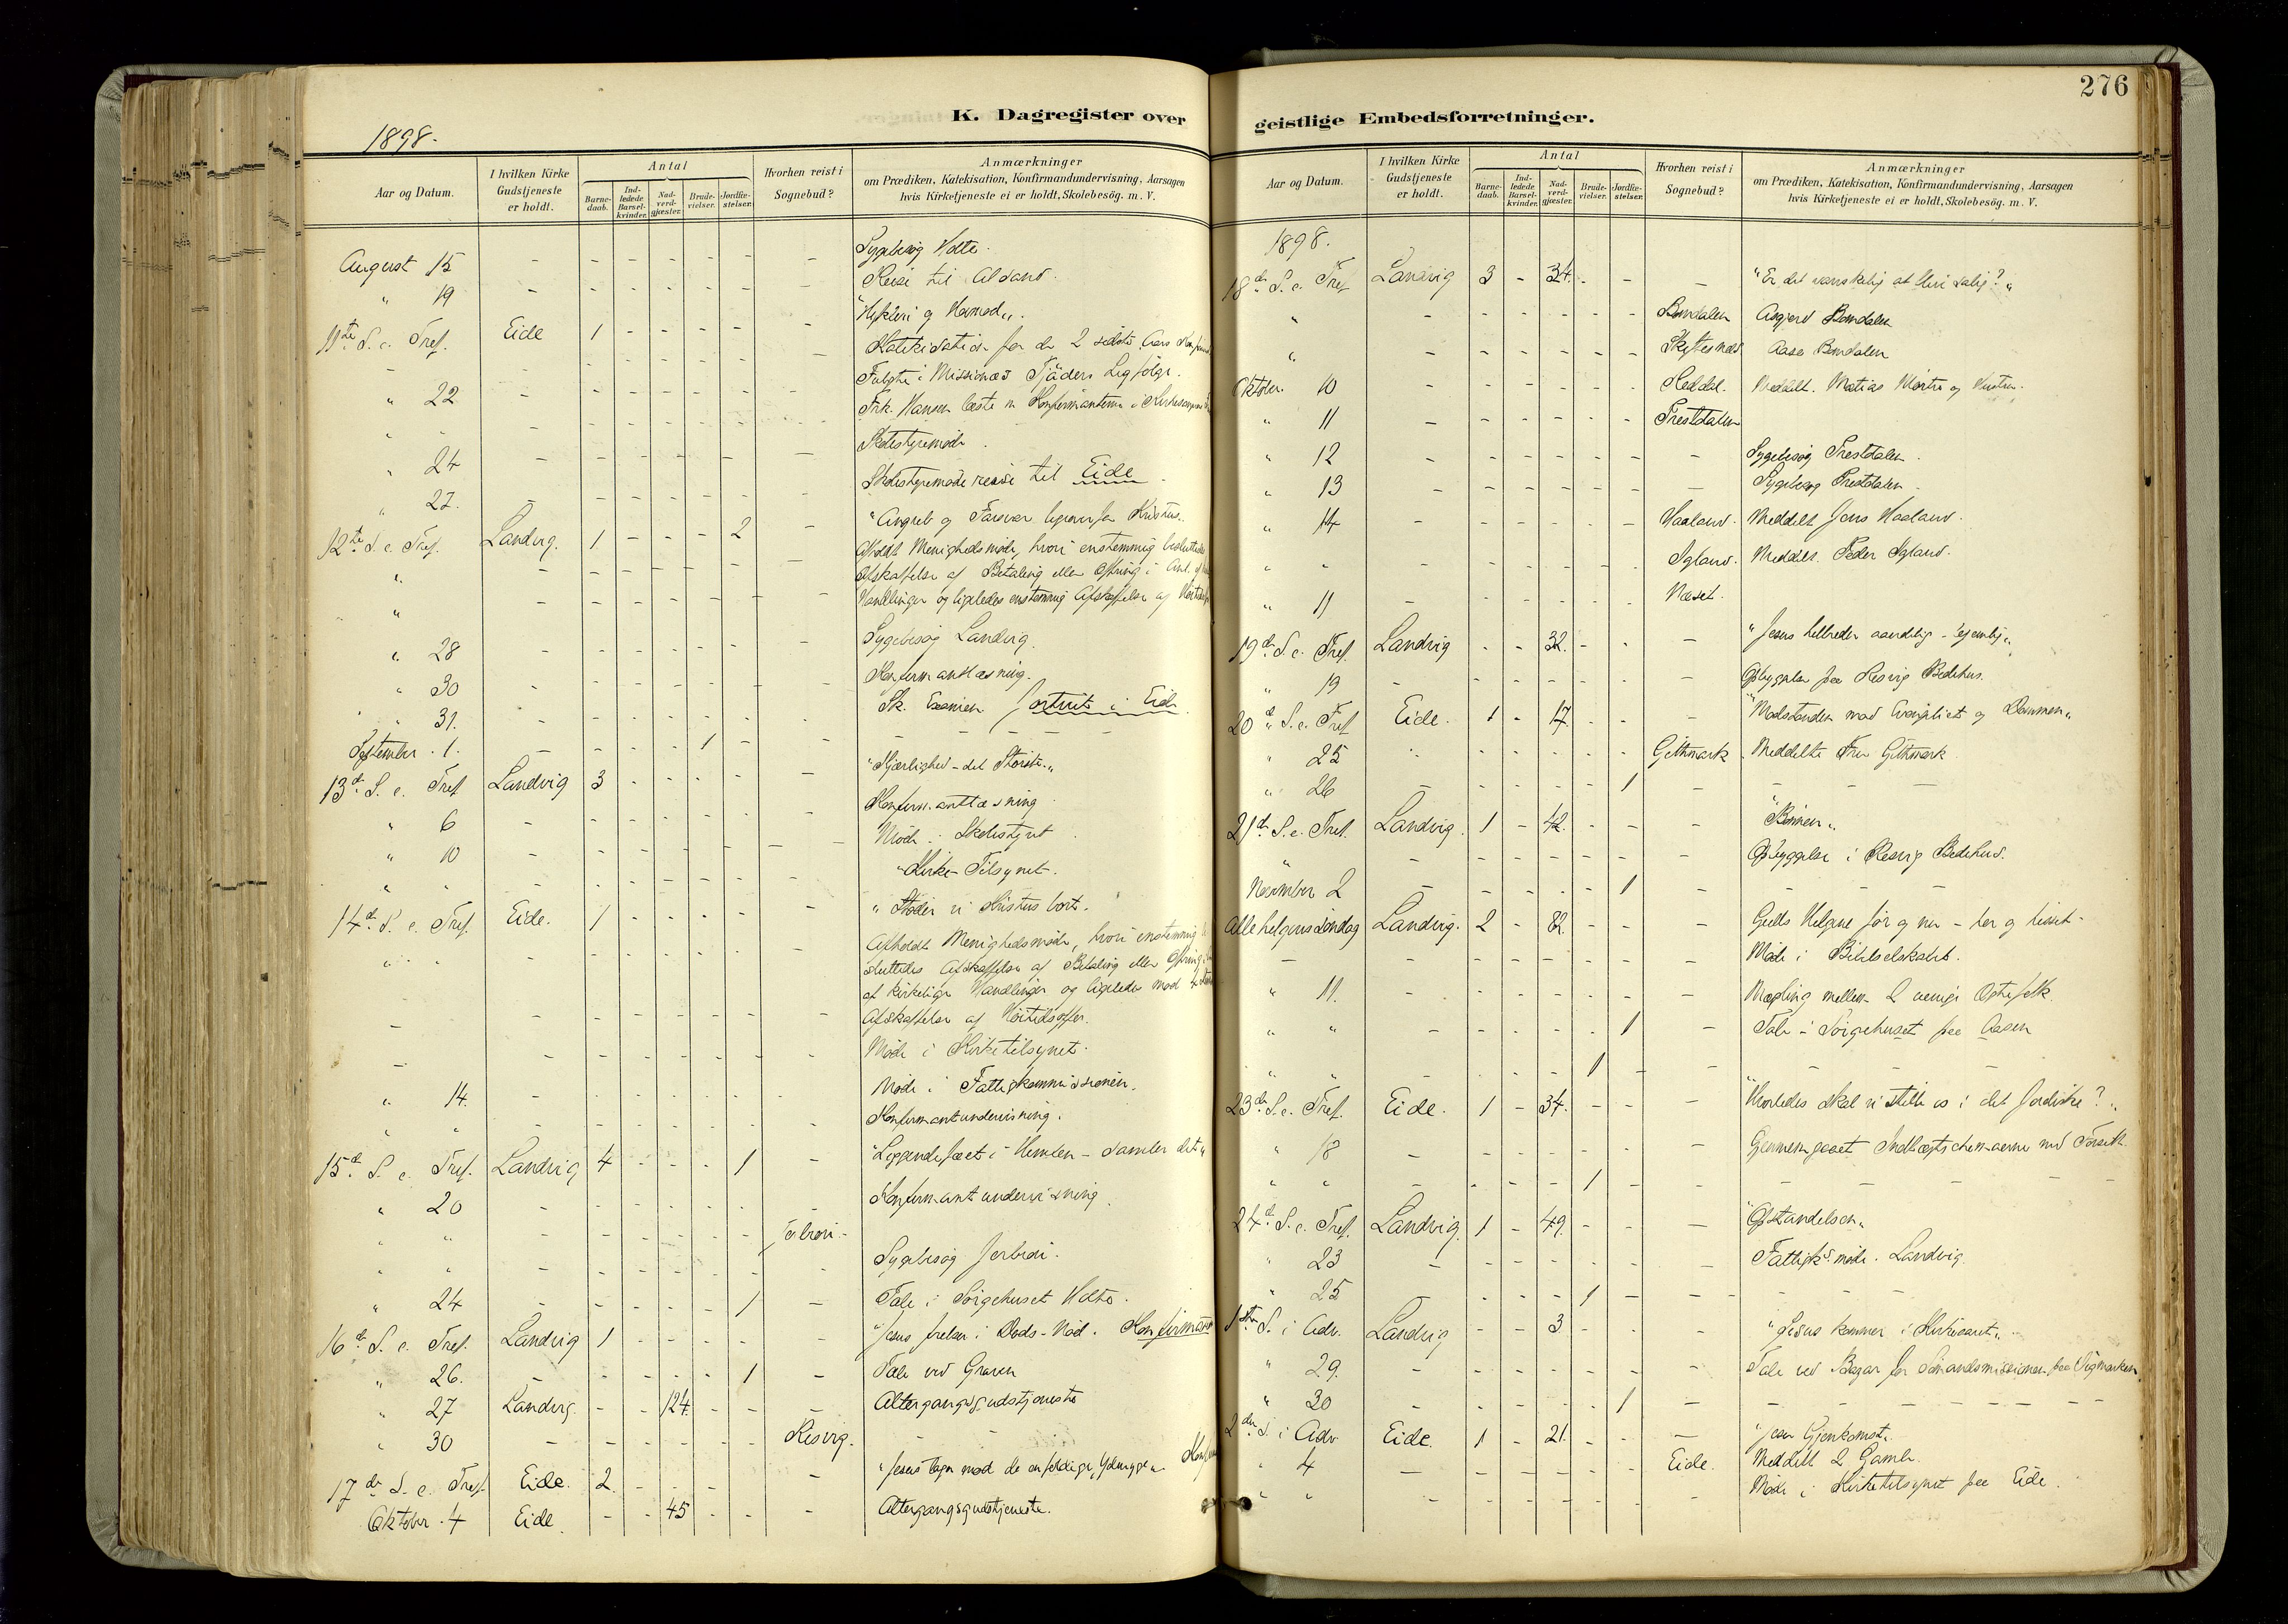 K. Dagregister over
1898.
Aar og Datum.
I hvilken Kirke Gudstjeneste er holdt.
Antal
Barne-daab.
Ind-ledede Barsel-kvinder.
Nad-verd-gjæster.
Brude-vielser.
Jordfæ-stelser.
Hvorhen reist i Sognebud?
Anmærkninger
om Prædiken, Katekisation, Konfirmandundervisning, Aarsagen
hvis Kirketjeneste ei er holdt, Skolebesög. m. V.
August 15 - - - - - - - Sygebesøg Holte.
" 19 - - - - - - - Reise til
11te S. e. Tref. Eide 1 - - - - - "Hykleri og
- - - - - - - Katekisation for de 2 sidste Aars
" 22 - - - - - - - Fulgte i Missionær Ligfølge.
" - - - - - - - - Frk. Hansen læste m Konfirmanterne i
" 24 - - - - - - - Skolestyremøde
" 27. - - - - - - - Skolestyremøde reise til Eide
12te S. e. Tref. Landvig. 1 - - - 2 - "Angreb og Forsvar
" - - - - - - - Afholdt Menighedsmøde, hvori enstemmig besluttedes
Afskaffelse af Betaling eller Ofring i Anl. af
" - - - - - - - Handlinger og ligeledes enstemmig Afskaffelse af
" 28 - - - - - - - Sygebesøg Landvig.
" 30 - - - - - - - Konfirmantlæsning.
" 31. - - - - - - - Sk. Examen i Eide
September 1. - - - - 1 - - - - - -
13de S. e. Tref Landvig 3 - - - - - "Kjærlighed - det Største."
" 6 - - - - - - - Konfirmantlæsning
" 10 - - - - - - - Møde i Skolestyret
" " - - - - - - - " Kirke-Tilsynet.
14de S. e. Tref. Eide. 1 - - - - - "Støder vi Kristus bort.
" " - - - - - - - Afholdt Menighedsmøde, hvori enstemmig
sluttedes Afskaffelse af Betaling eller Ofring
af kirkelige Handlinger og ligeledes mod 4
- - - - - - - - Afskaffelse af Høitidsoffer.
- - - - - - - - Møde i Kirketilsynet.
" 14. - - - - - - - Møde i Fattigkommissionen.
" " - - - - - - - Konfirmantundervisning.
15de S. e. Tref. Landvig 4 - - - 1 - i Himlen - samler det"
" 20 - - - - - - - Konfirmantundervisning.
" " - - - - - -
" " - - - - - - - Sygebesøg
" 24 - - - - - 1 - Tale i Sørgehuset Holte.
16de S. e. Tref. Landvig 1 - - - - - "Jesus frelser i Døds-Nød.
" 26. - - - - - 1 - Tale ved Graven
" 27 Landvig. - - 124. - - - Altergangsgudstjeneste
" 30 - - - - - - Resvig. - -
17de S. e. Tref. Eide. 2. - - - - - "Jesus tager mod de enfoldige,
Oktober 4 Eide. - - 45 - - - Altergangsgudstjeneste.
276
geistlige Embedsforretninger.
Aar og Datum.
I hvilken Kirke Gudstjeneste er holdt.
Antal
Barne-daab.
Ind-ledede Barsel-kvinder.
Nad-verd-gjæster.
Brude-vielser.
Jordfæ-stelser.
Hvorhen reist i Sognebud?
Anmærkninger
om Prædiken, Katekisation, Konfirmandundervisning, Aarsagen
hvis Kirketjeneste ei er holdt, Skolebesög. m. V.
1898.
18de S. e. Tref Landvig 3 - 34. - - - "Er det vanskelig at blive salig?"
" - - - - - - Bondalen Asgjerd Bondalen
" - - - - - - Aase Bondalen
Oktober. 10 - - - - - - Reddal. Meddelt. Matias og Hustru.
" 11 - - - - - - Trestdalen
" 12 - - - - - - - Sygebesøg Trestdalen.
" 13 - - - - - - - Sygebesøg Trestdalen
" 14 - - - - - - Haaland. Meddelt Jens Haaland.
" " - - - - - - Igland. Meddelt. Peder Igland.
" 11 - - - - - - Næset.
19de S. e. Tref. Landvig - - 32. - - - "Jesus helbreder aandelig - legemlig."
" 19 - - - - - - - Opbyggelse paa Resvig Bedehus.
20de S. e. Tref Eide. 1 - 17. - - - "Modstanden mod Evangeliet og Dommen"
" 25 - - - - - - Githmark Meddelte Fru Githmark
" 26 - - - - - 1 - - - -
21de S. e. Tref. Landvig. 1 - 42. - - - "Bønnen"
" - - - - - - - Opbyggelse i Resvig Bedehus.
November 2 - - - - - 1 - - - -
Allehelgensøndag Landvig. 2 - 82. - - - Guds Helgene før og nu - her og hisset.
- - - - - - - - Møde i Bibelselskabet.
" 11. - - - - - - - Mægling mellem 2 uenige Ægtefolk.
" " - - - - - 1 - Tale i Sørgehuset paa Aasen
" " - - - - 1 - - - - -
23de S. e. Tref. Eide. 1 - 34. - - - "Hvorledes skal vi stille os i det Jordiske?"
" 18 - - - - - - - Gjennemgaaet
" " - - - - 1 - - - - -
24de S. e. Tref. Landvig. 1 - 49. - - - "Opstandelsen"
" 23 - - - - - - - Fattigks. møde. Landvig.
" 25 - - - - 1 - - - - -
1ste S. i Adv. Landvig - - 3 - - - "Jesus kommer i Kirkeaaret".
" 29. - - - - - - - Tale ved Bazar for Sømandsmissionen paa
" 30 - - - - - 1 - - - -
2den S. i Adv. Eide. 1 - 21. - - - "Jesu Gjenkomst".
" 4 - - - - - - Eide. Meddelt 2 Gamle.
" " - - - - - - - Møde i Kirketilsynet paa Eide.